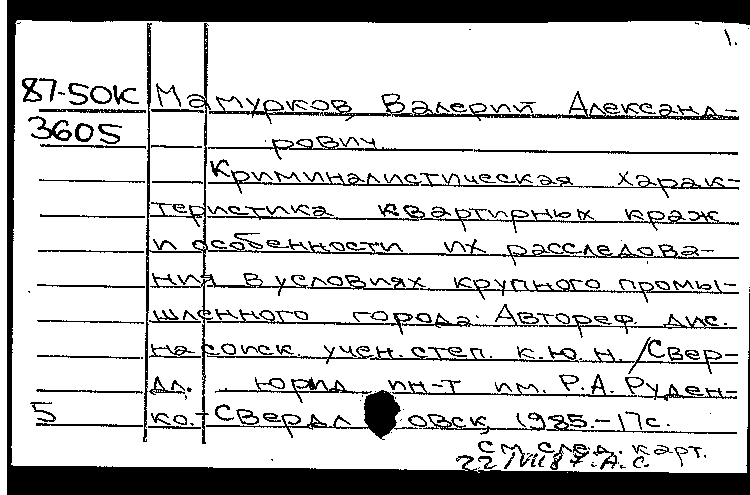 1.
87-50К Мамурков, Валерий Александ-
3605 рович.
Криминалистическая харак-
теристика квартирных краж
и особенности их расследова-
ния в условиях крупного промы-
шленного города: Автореф. дис.
на соиск. учен. степ. к.ю.н. /Свер-
дл. юрид ин-т им. Р.А. Руден-
5 ко. - Свердловск, 1985. - 17с.
См. след. карт.
22/VII 87. А.С.